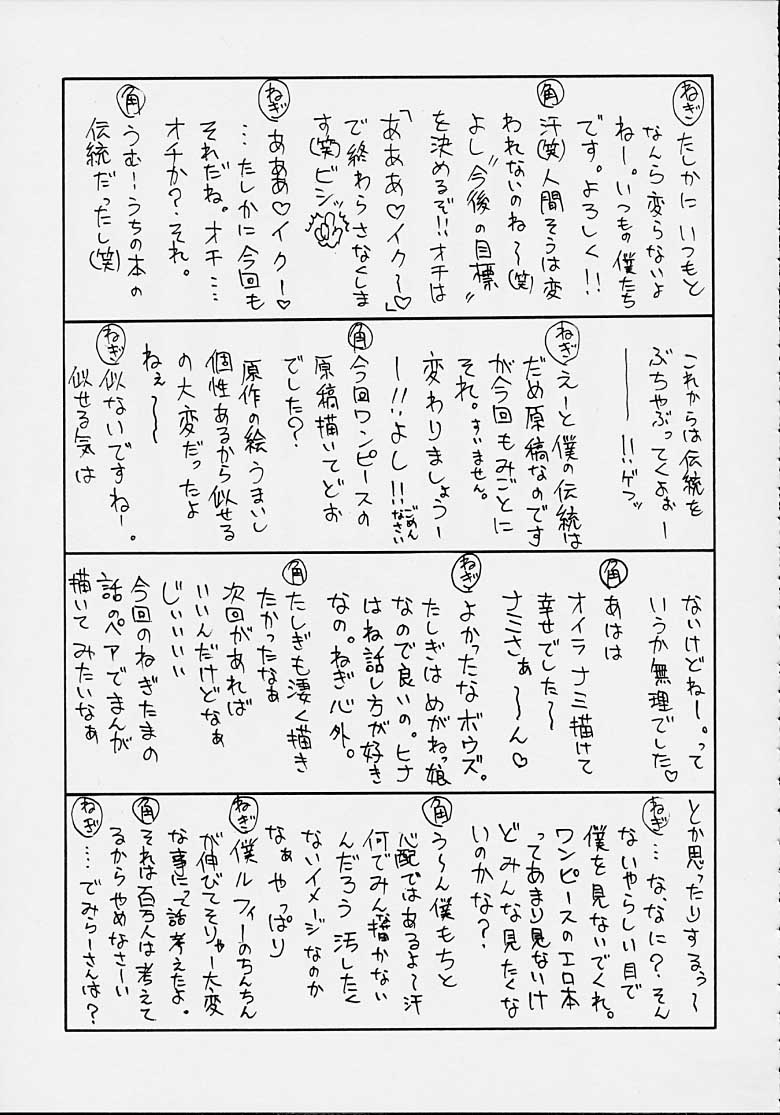 ねぎ たしかにいつもと
なんら変らないよ
ねー。いつもの僕たち
です。よろしく!!
角 汗(笑)人間そうは変
われないのね〜(笑)
よし"今後の目標"
を決めるぞ!!オチは
「あああ♡イク〜♡」
で終わらさなくしま
す(笑)ビシッ
ねぎ あああ♡イクー♡
…たしかに今回も
それだね。オチ…
オチか?それ。
角 うむーうちの本の
伝統だったし(笑)
これからは伝統を
ぶちゃぶってくよぉー
ーーー!!ゲフッ
ねぎ えーと僕の伝統は
だめ原稿なのです
が今回もみごとに
それ。すいません。
変わりましょうー
ー!!よし!!ごめんなさい
角 今回ワンピースの
原稿描いてどお
でした?
原作の絵うまいし
個性あるから似せる
の大変だったよ
ねぇ〜〜
ねぎ 似ないですねー。
似せる気は
ないけどねー。って
いうか無理でした♡
角 あはは
オイラナミ描けて
幸せでした〜
ナミさぁ〜〜ん♡
ねぎ よかったなボウズ。
たしぎはめがねっ娘
なので良いの。ヒナ
はね話し方が好き
なの。ねぎ心外。
角 たしぎも凄く描き
たかったなぁ
次回があれば
いいんだけどなぁ
じぃいいい
今回のねぎたまの
話のペアでまんが
描いてみたいなぁ
とか思ったりするぅ〜
ねぎ …な、なに?そん
ないやらしい目で
僕を見ないでくれ。
ワンピースのエロ本
ってあまり見ないけ
どみんな見たくな
いのかな?
角 う〜ん僕もちと
心配ではあるよ〜汗
何でみん描かない
んだろう汚したく
ないイメージなのか
なぁやっぱり
ねぎ 僕ルフィーのちんちん
が伸びてそりゃー大変
な事にって話考えたよ。
角 それは百万人は考えて
るからやめなさーい
ねぎ …でみらーさんは?